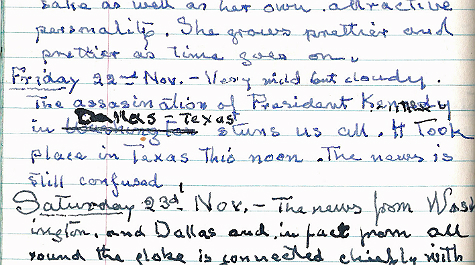 sake as well as her own attractive
personality. She grows prettier and
prettier as time goes on.
Friday 22nd Nov. - Very mild but cloudy.
The assasination of President Kennedy
Dallas - Texas
in Washington stuns us all. It Took
place in Texas This noon. The news is
still confused
Saturday 23d Nov. - The news from Wash
ington, and Dallas and in fact from all
round the globe is connected chiefly with